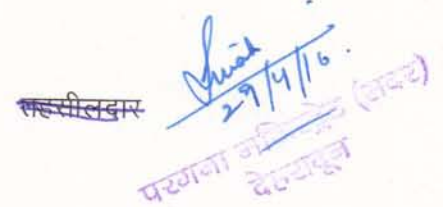 तहसीलदार
29/4/16.
परगना मजिस्ट्रेट (सदर)
देहरादून